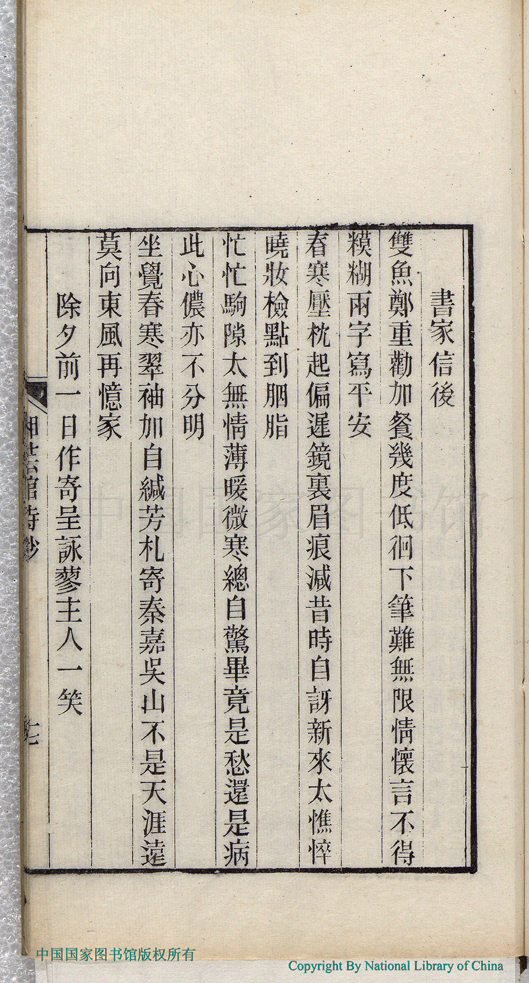 書家信後
雙魚鄭重勸加餐幾度低徊下筆難無限情懷言不得
糢糊兩字寫平安
春寒壓枕起偏遲鏡裏眉痕減昔時自訝新來太憔悴
曉妝檢點到胭脂
忙忙駒隙太無情薄暖微寒總自驚畢竟是愁還是病
此心儂亦不分明
坐覺春寒翠袖加自緘芳札寄秦嘉吳山不是天涯遠
莫向東風再憶家
除夕前一日作寄呈詠蓼主人一笑
館詩鈔
中国国家图书馆
中国国家图书馆版权所有
Copyright By National Library of China